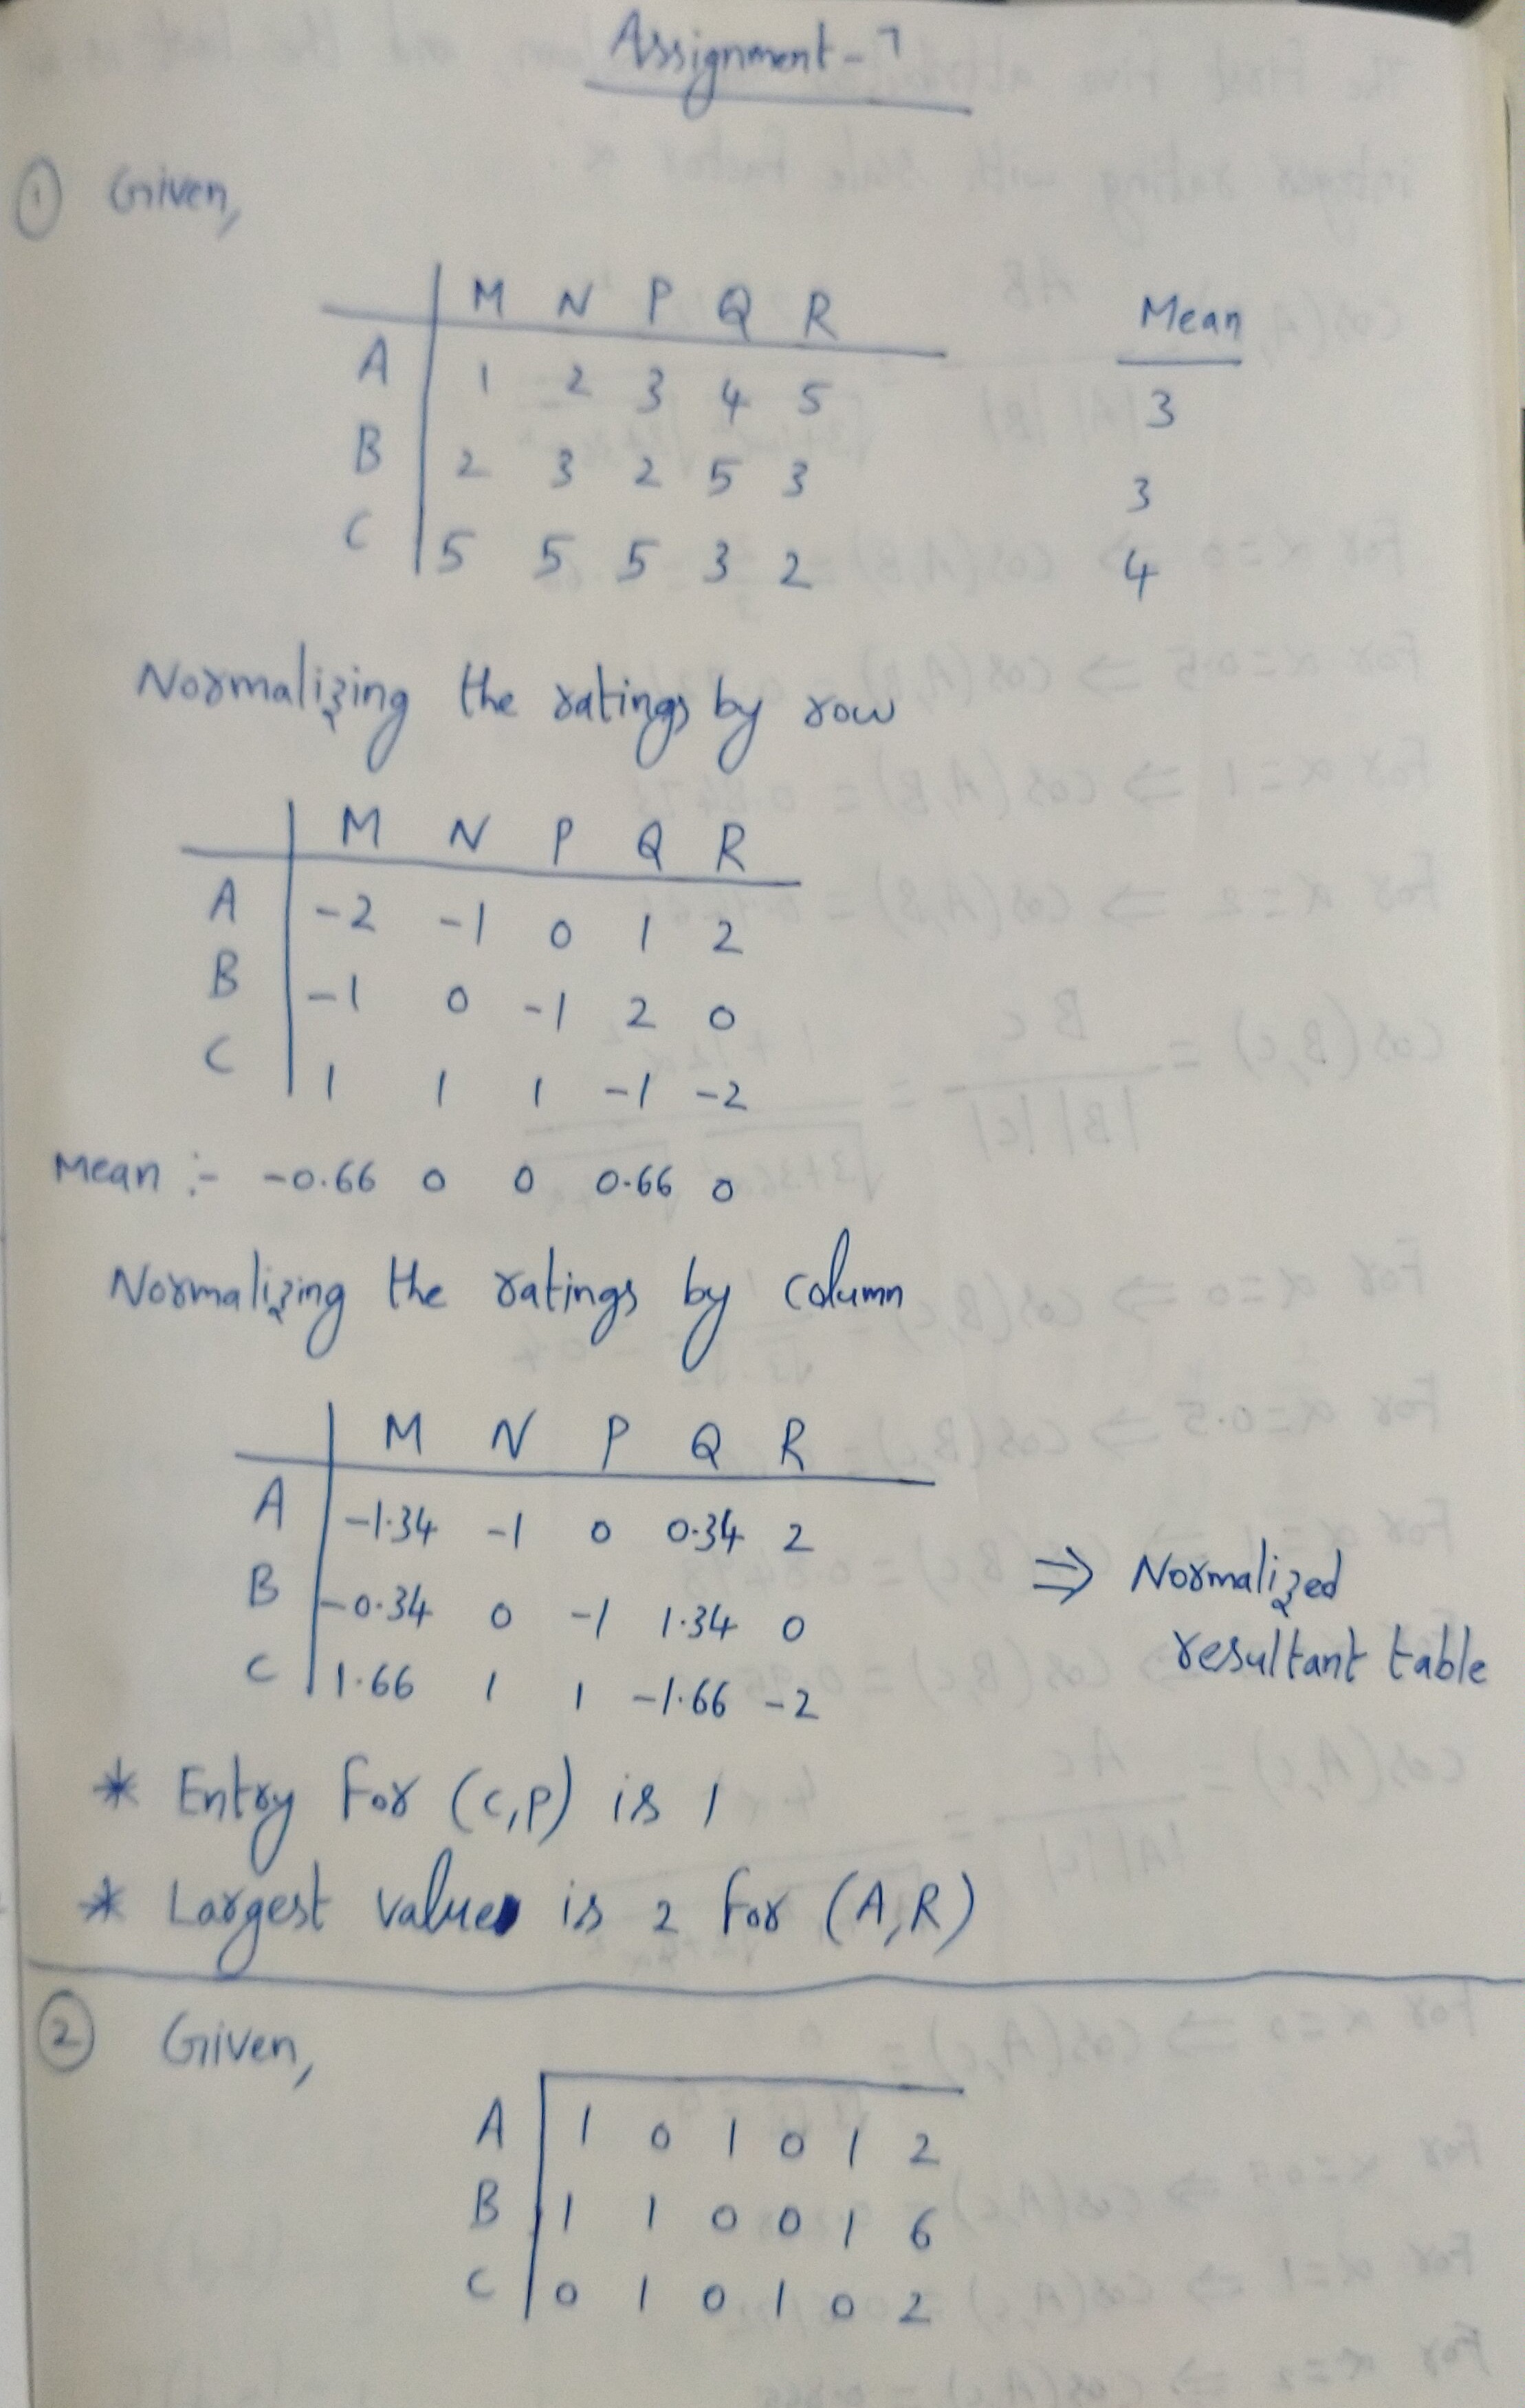 Assignment-7
① Given,
M N P Q R Mean
A 1 2 3 4 5 3
B 2 3 2 5 3 3
C 5 5 5 3 2 4
Normalizing the ratings by row
M N P Q R
A -2 -1 0 1 2
B -1 0 -1 2 0
C 1 1 1 -1 -2
Mean :- -0.66 0 0 0.66 0
Normalizing the ratings by column
M N P Q R
A -1.34 -1 0 0.34 2
B -0.34 0 -1 1.34 0 ⇒ Normalized
C 1.66 1 1 -1.66 -2 resultant table
* Entry for (C,P) is 1
* Largest value is 2 for (A,R)
② Given,
A 1 0 1 0 1 2
B 1 1 0 0 1 6
C 0 1 0 1 0 2